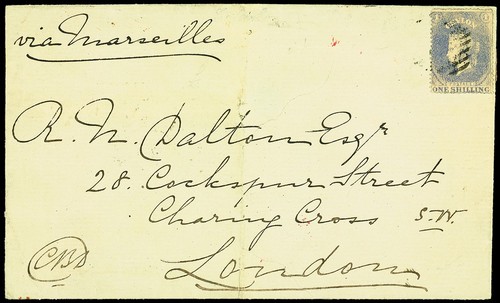 via Marseilles
CEYLON
ONE SHILLING
R. N. Dalton Esqr
28. Cockspur Street
Charing Cross S.W.
London